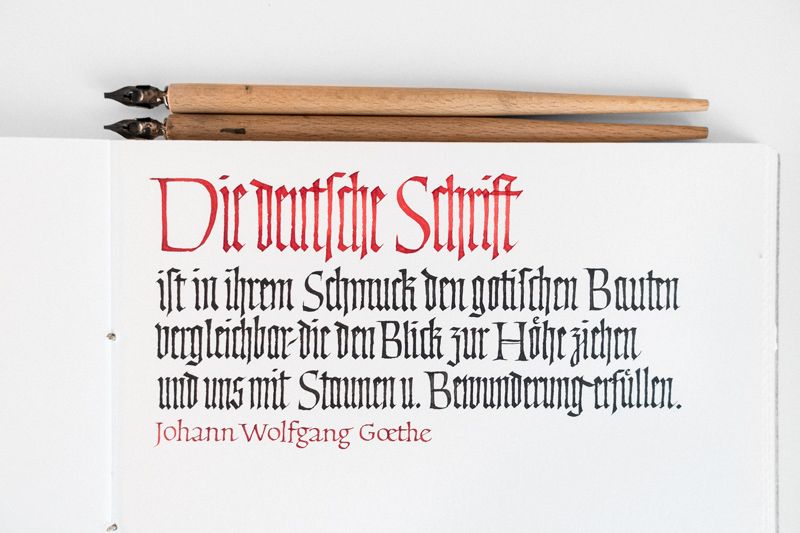 Die deutſche Schrift
iſt in ihrem Schmuck den gotiſchen Bauten
vergleichbar-die den Blick zur Hoͤhe ziehen
und uns mit Staunen u. Bewunderung erfuͤllen.
Johann Wolfgang Gœthe